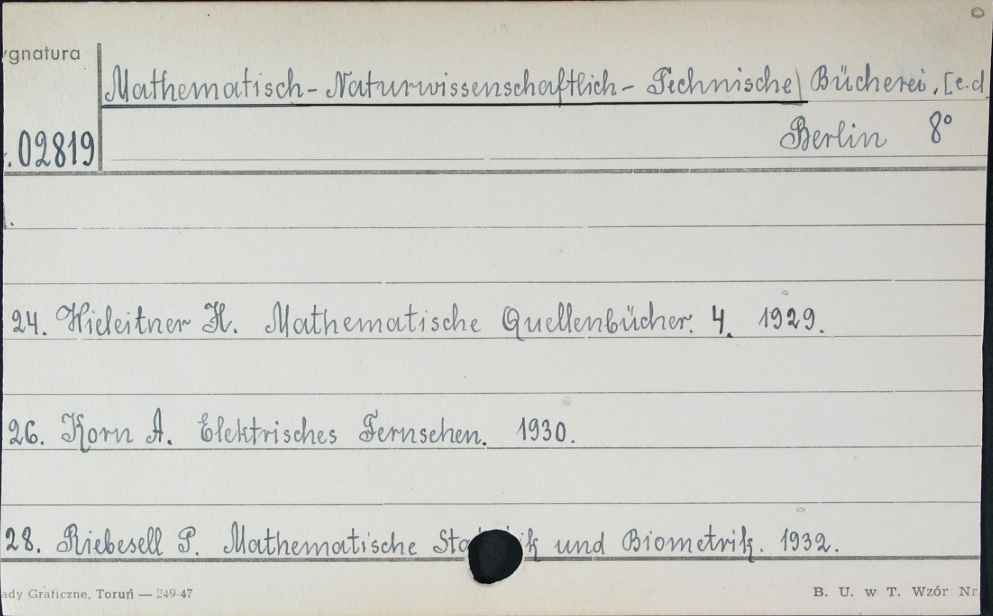 ygnatura
Mathematisch-Naturwissenschaftlich-Technische) Bücherei, [e.d
.02819
Berlin 8°
24. Hieleitner H. Mathematische Quellenbücher. 4. 1929.
26. Korn A. Elektrisches Fernsehen. 1930.
28. Riebesell P. Mathematische und Biometrik. 1932.
ady Graficzne, Toruń — 249-47
B. U. w T. Wzór Nr